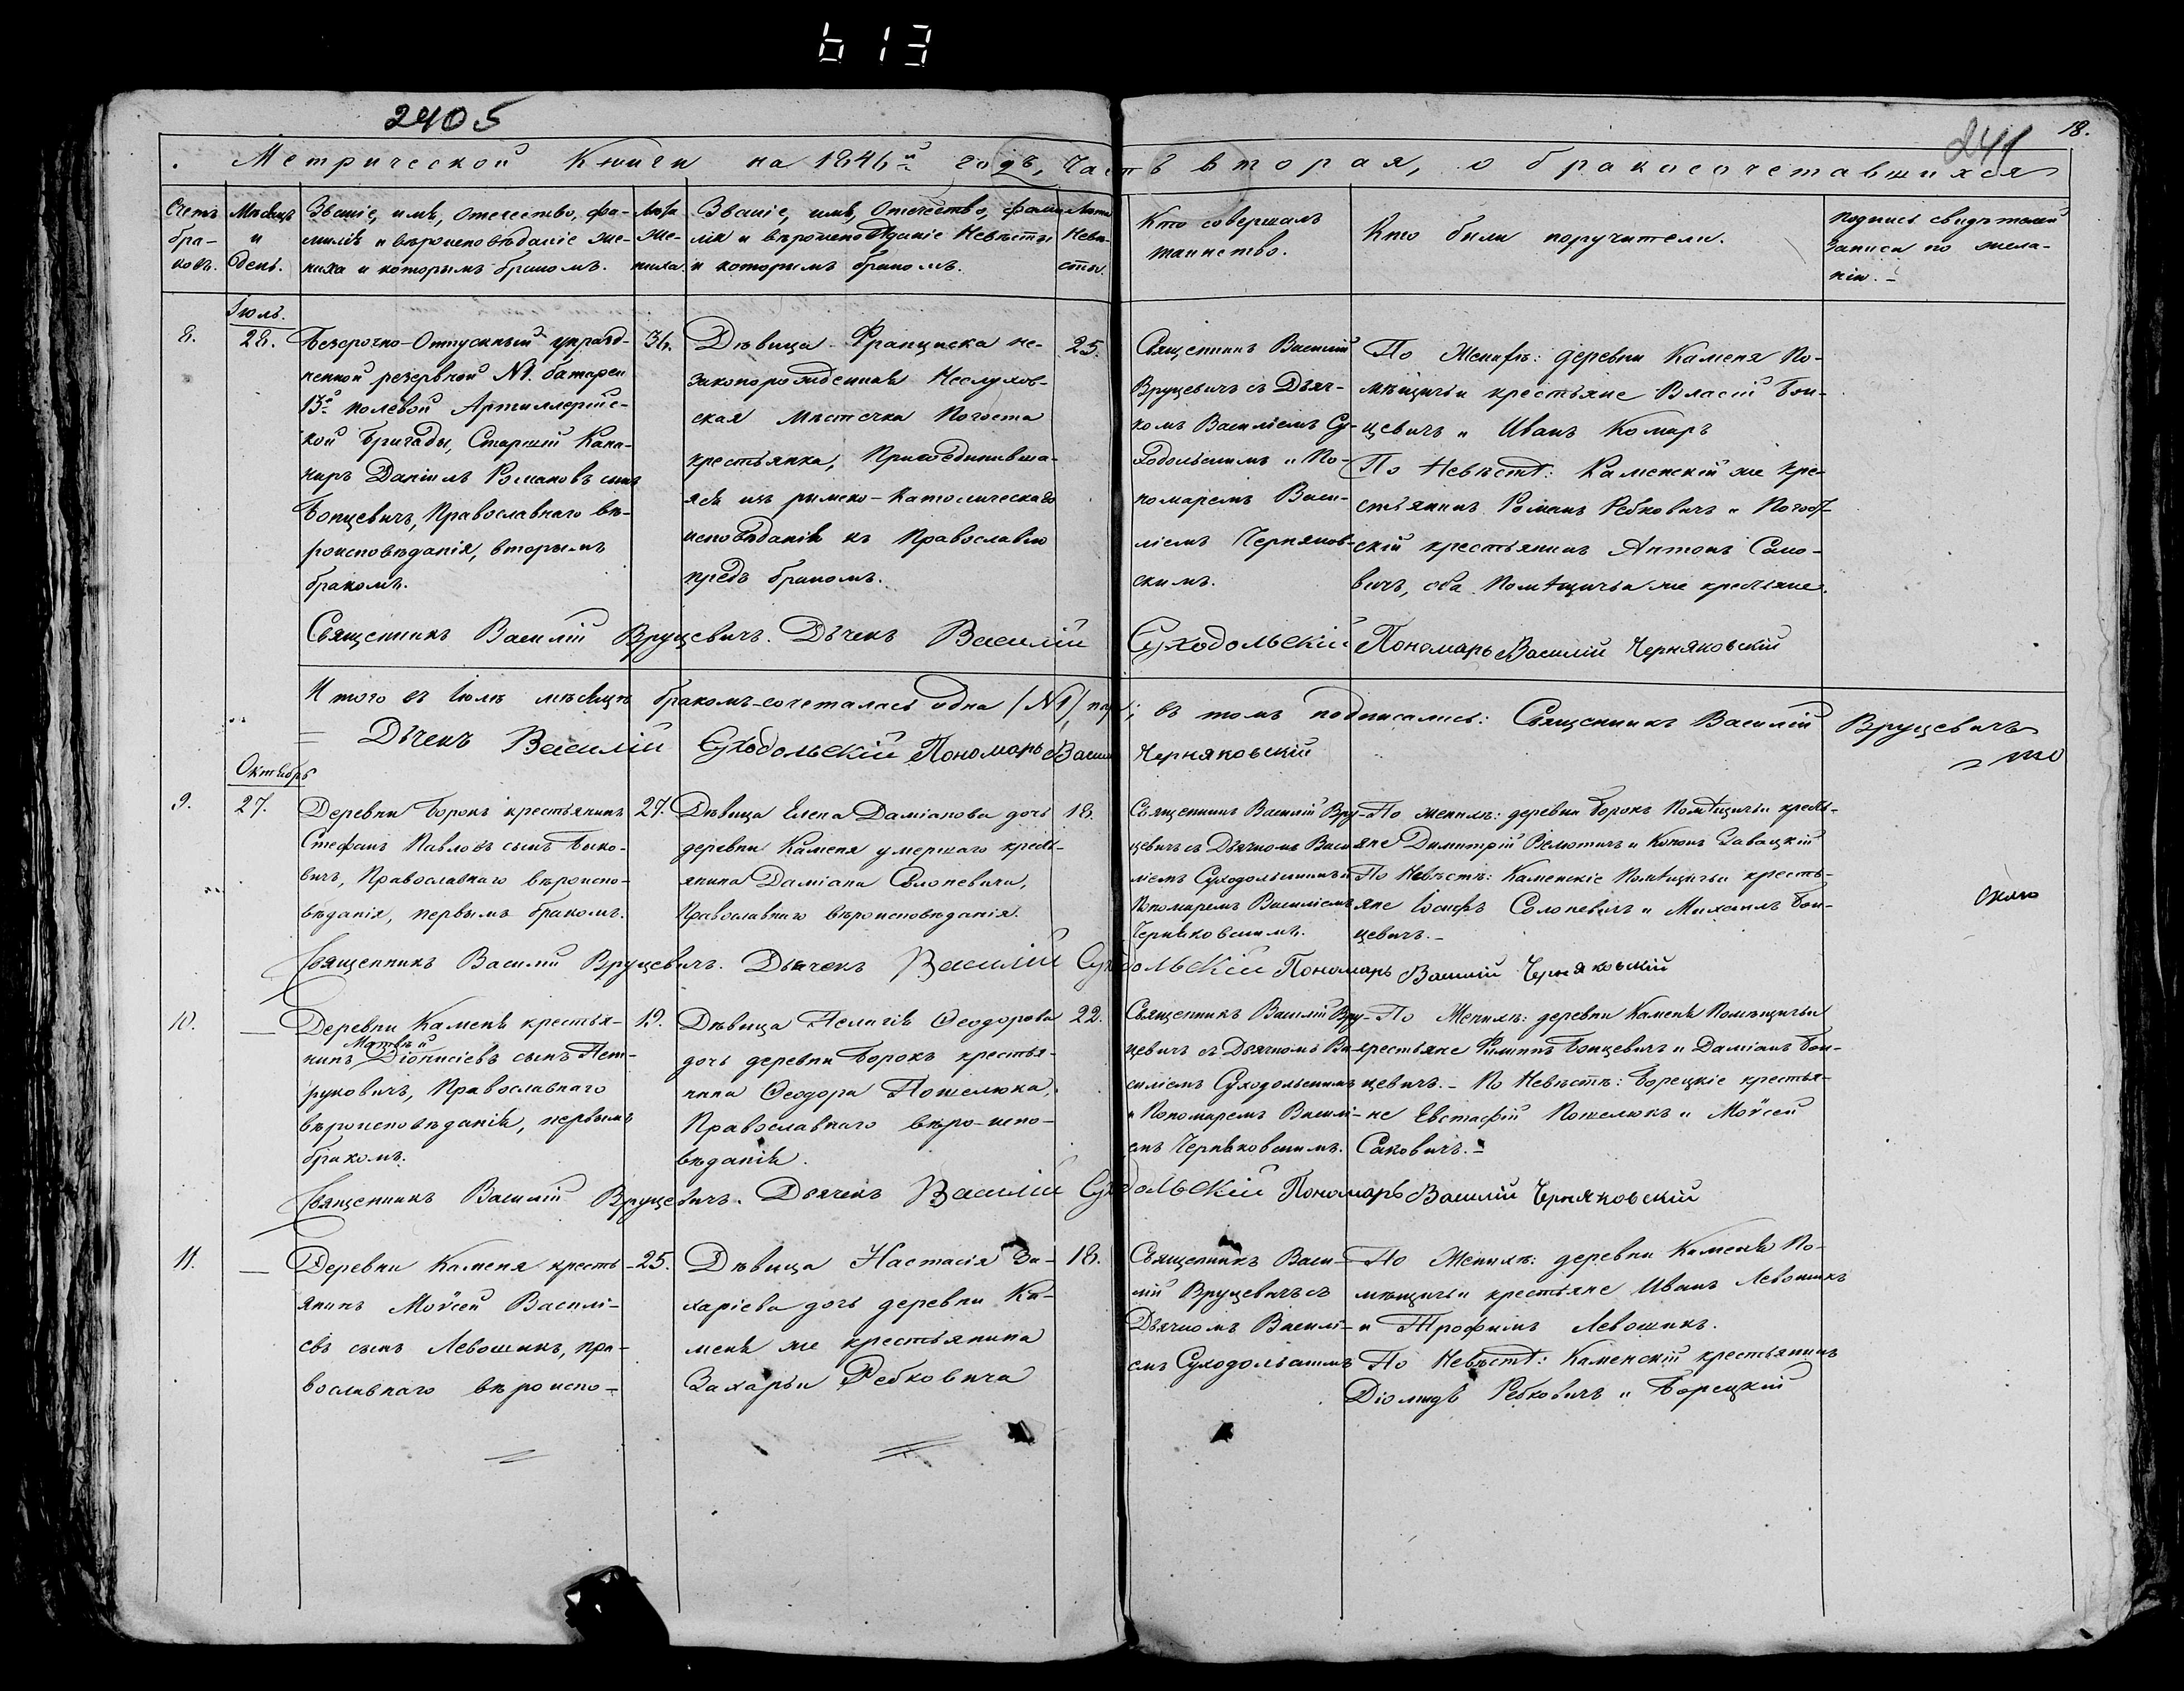 613
2405
241
18.
Метрической Книги на 1846й годъ, Часть вторая, о бракосочетавшихся
Счетъ
бра-
ковъ.
Мѣсяцъ
и
день.
Званіе, имя, отечество, фа-
милія и вѣроисповѣданіе же-
ниха и которымъ бракомъ.
Лѣта
же-
ниха.
Званіе, имя, отечество, фами-
лія и вѣроисповѣданіе Невѣсты
и которымъ бракомъ.
Лѣта
Невѣ-
сты.
Кто совершалъ
таинство.
Кто были поручители.
подпись свидѣтелей
записи по жела-
нію.
Іюль.
8.
28.
Безсрочно-Отпускный упразд-
ненной резервной №1. батареи
13й полевой Артиллерійс-
кой Бригады, Старшій Кано-
ниръ Даніилъ Романовъ сынъ
Бонцевичъ, Православнаго вѣ-
роисповѣданія, вторымъ
бракомъ.
36.
Дѣвица Франциска не-
законорожденная Неслухов-
ская Мѣстечка Погоста
крестьянка, Присоединивша-
яся изъ римско-католическаго
исповѣданія къ Православію
предъ бракомъ.
25.
Священникъ Василій
Вруцевичъ съ Дьяч-
комъ Василіемъ Су-
ходольскимъ и По-
номаремъ Васи-
ліемъ Черняков-
скимъ.
По Женихѣ: деревни Каменя По-
мѣщичьи крестьяне Власій Бон-
цевичъ и Иванъ Комаръ
По Невѣстѣ: Каменскій же кре-
стьянинъ Романъ Ребковичъ и Погост-
скій крестьянинъ Антонъ Само-
вичъ, оба Помѣщичьи же крестьяне.
Священникъ Василій Вруцевичъ. Дьячекъ Василій Суходольскій Пономарь Василій Черняковскій
Итого въ Іюлѣ мѣсяцѣ бракомъ сочеталась одна (№1) пара; въ томъ подписались: Священникъ Василій Вруцевичъ
Дьячекъ Василій Суходольскій Пономарь Василій Черняковскій
Октябрь
9.
27.
Деревни Борокъ крестьянинъ
Стефанъ Павловъ сынъ Быко-
вичъ, Православнаго вѣроиспо-
вѣданія, первымъ бракомъ.
27.
Дѣвица Елена Даміанова дочь
деревни Каменя умершаго кресть-
янина Даміана Солоневича,
Православнаго вѣроисповѣданія.
18.
Священникъ Василій Вру-
цевичъ съ Дьячкомъ Васи-
ліемъ Суходольскимъ и
Пономаремъ Василіемъ
Черняковскимъ.
По женихѣ: деревни Борокъ Помѣщичьи кресть-
яне Димитрій Велютичъ и Кононъ Савацкій
По Невѣстѣ: Каменскіе Помѣщичьи кресть-
яне Іосифъ Солоневичъ и Михаилъ Бон-
цевичъ.
Священникъ Василій Вруцевичъ. Дьячекъ Василій Суходольскій Пономарь Василій Черняковскій
10.
Деревни Каменя крестья-
нинъ Матвѣй Діонисіевъ сынъ Пет-
руковичъ, Православнаго
вѣроисповѣданія, первымъ
бракомъ.
19.
Дѣвица Пелагія Ѳеодорова
дочь деревни Борокъ крестья-
нина Ѳеодора Пошелюка,
Православнаго вѣро-испо-
вѣданія.
22.
Священникъ Василій Вру-
цевичъ съ Дьячкомъ Ва-
силіемъ Суходольскимъ
и Пономаремъ Василі-
емъ Черняковскимъ.
По Женихѣ: деревни Каменя Помѣщичьи
крестьяне Филиппъ Бонцевичъ и Даміанъ Бон-
цевичъ. – По Невѣстѣ: Борецкіе крестья-
не Евстафій Пошелюкъ и Моѵсей
Саковичъ.
Священникъ Василій Вруцевичъ. Дьячекъ Василій Суходольскій Пономарь Василій Черняковскій
11.
Деревни Каменя кресть-
янинъ Моѵсей Василі-
евъ сынъ Левошикъ, пра-
вославнаго вѣроиспо-
25.
Дѣвица Настасія За-
харіева дочь деревни Ка-
меня же крестьянина
Захарьи Ребковича
18.
Священникъ Васи-
лій Вруцевичъ съ
Дьячкомъ Василі-
емъ Суходольскимъ
По Женихѣ: деревни Каменя По-
мѣщичьи крестьяне Иванъ Левошикъ
и Трофимъ Левошикъ.
По Невѣстѣ: Каменскій крестьянинъ
Діомидъ Ребковичъ и Борецкій